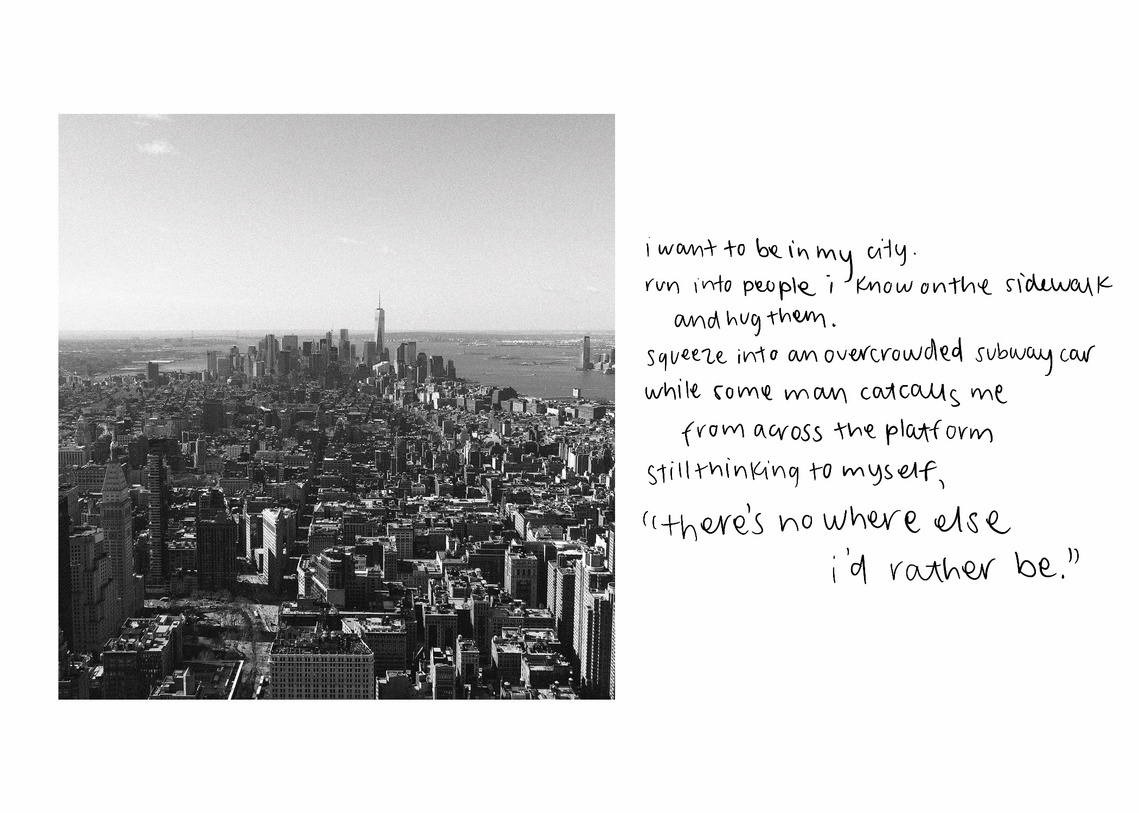 i want to be in my city.
run into people i know on the sidewalk
and hug them.
squeeze into an overcrowded subway car
while some man catcalls me
from across the platform
still thinking to myself,
"there's nowhere else
i'd rather be."